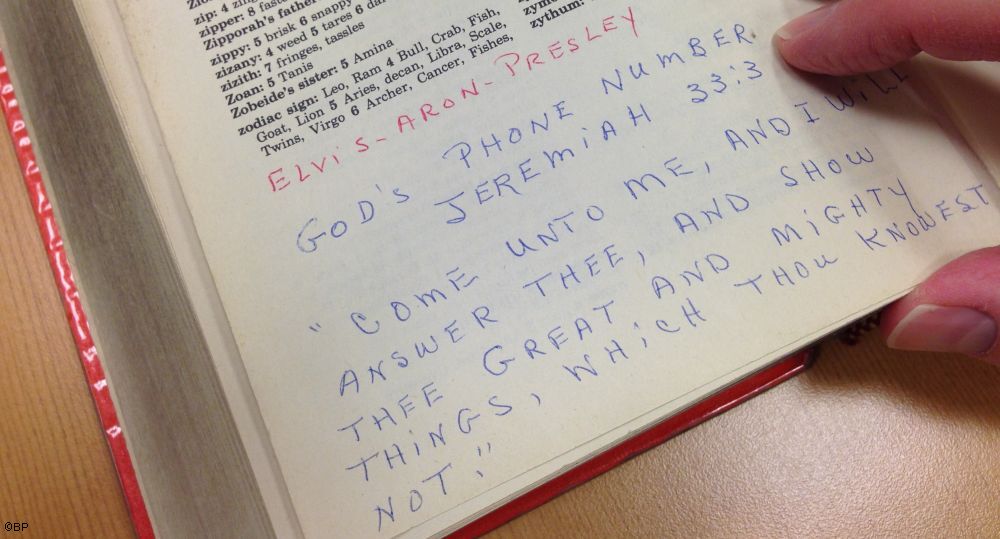 zip: 4
zipper: 8
Zipporah's father
zippy: 5 brisk 6 snappy
zizany: 4 weed 5 tares 6
zizith: 7 fringes, tassles
Zoan: 5 Tanis
Zobeide's sister: 5 Amina
zodiac sign: Leo, Ram 4 Bull, Crab, Fish,
Goat, Lion 5 Aries, decan, Libra, Scale,
Twins, Virgo 6 Archer, Cancer, Fishes,
zythum:
ELViS-ARON-PRESLEY
GOD'S PHONE NUMBER
JEREMiAH 33:3
"COME UNTO ME, AND I WiLL
ANSWER THEE, AND SHOW
THEE GREAT AND MiGHTY
THiNGS, WHiCH THOU KNOWEST
NOT."
©BP